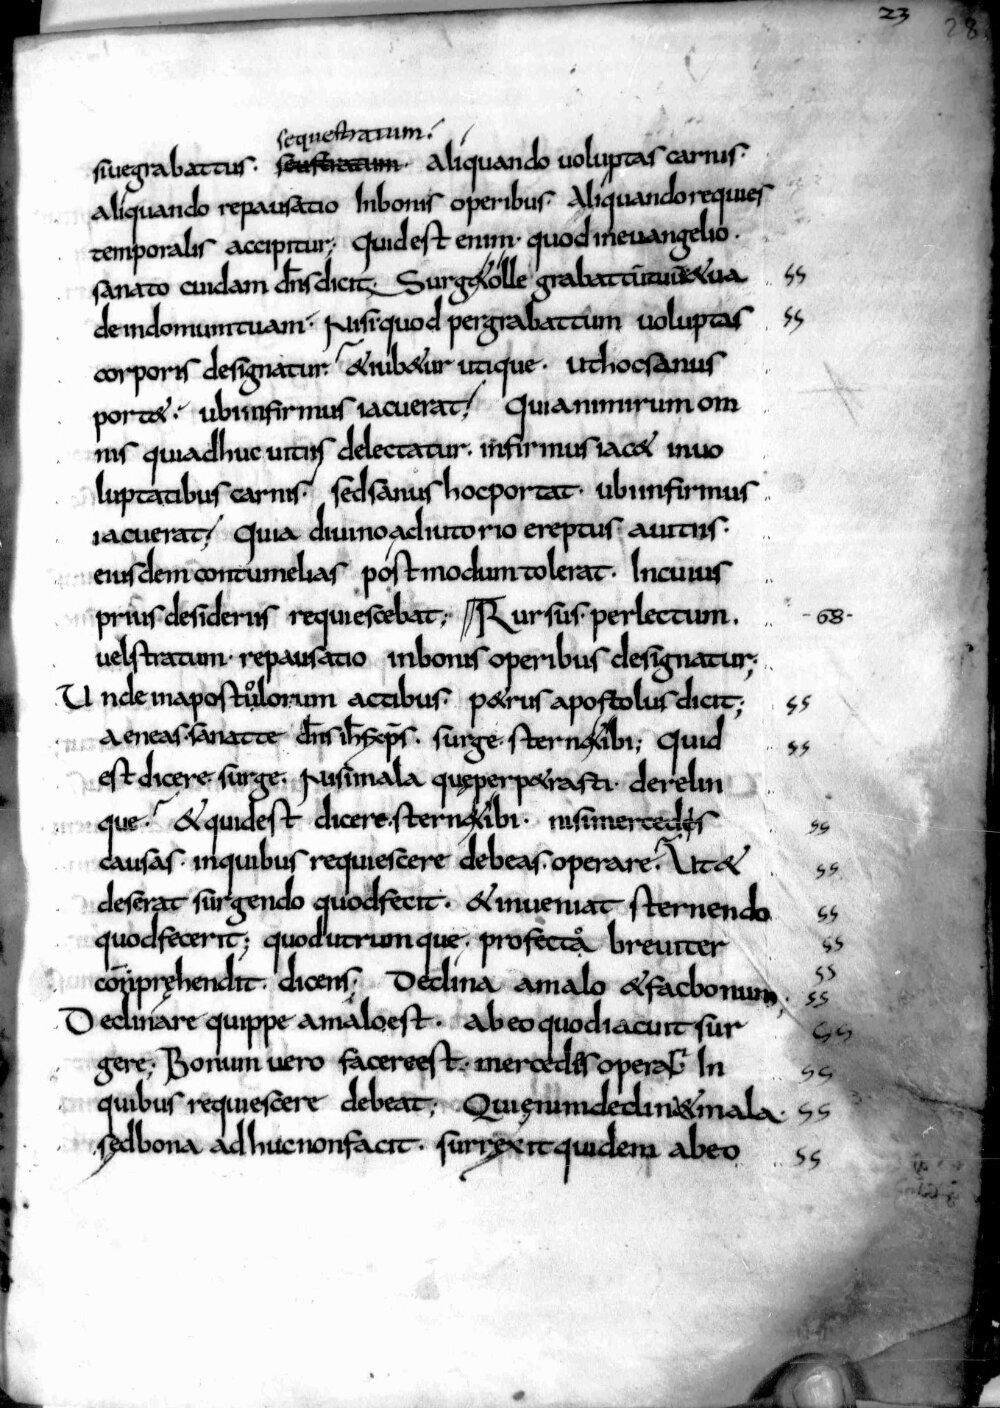 23
28
sequestratum.
siuegrabattus. seustratum. aliquando uoluptas carnis.
aliquando repausatio Inbonis operibus. Aliquandorequies
temporalis accipitur; Quidest enim. quod ineuangelio.
sanato cuidam dn̄s dicit. Surg&tolle grabattū tuū&ua ss
deindomumtuam. Nisiquod pergrabattum uoluptas ss
corporis designatur. &iub&ur utique. uthocsanus
port&. ubiinfirmus iacuerat; Quianimirum om
nis quiadhuc uitiis delectatur. infirmus iac& inuo
luptatibus carnis. sedsanus hocportat. ubiinfirmus
iacuerat; Quia diuinoadiutorio ereptus auitiis.
eiusdem contumelias postmodum tolerat. Incuius
prius desideriis requiescebat; Rursus perlectum. -68-
uelstratum. repausatio inbonis operibus designatur;
Unde inapostolorum actibus. p&rus apostolus dicit; ss
aeneas. sanatte dn̄s ih̄s xp̄s. surge. stern&ibi; Quid ss
est dicere surge. Nisimala quęperp&rasti. derelin
que. &quidest dicere. stern&ibi. nisimercedis ss
causas. inquibus requiescere debeas. operare. Ut& ss
deserat surgendo quodfecit. &inueniat sternendo ss
quodfecerit; quodutrumque. profecta breuiter ss
conpręhendit. dicens. Declina amalo &facbonum; ss
ss
Declinare quippe amaloest. abeo quodiacuit sur ss
gere; Bonum uero facereest. mercedis opera. In ss
quibus requiescere debeat; Quienimdeclin&mala. ss
sedbona adhucnonfacit. surrexit quidem abeo ss